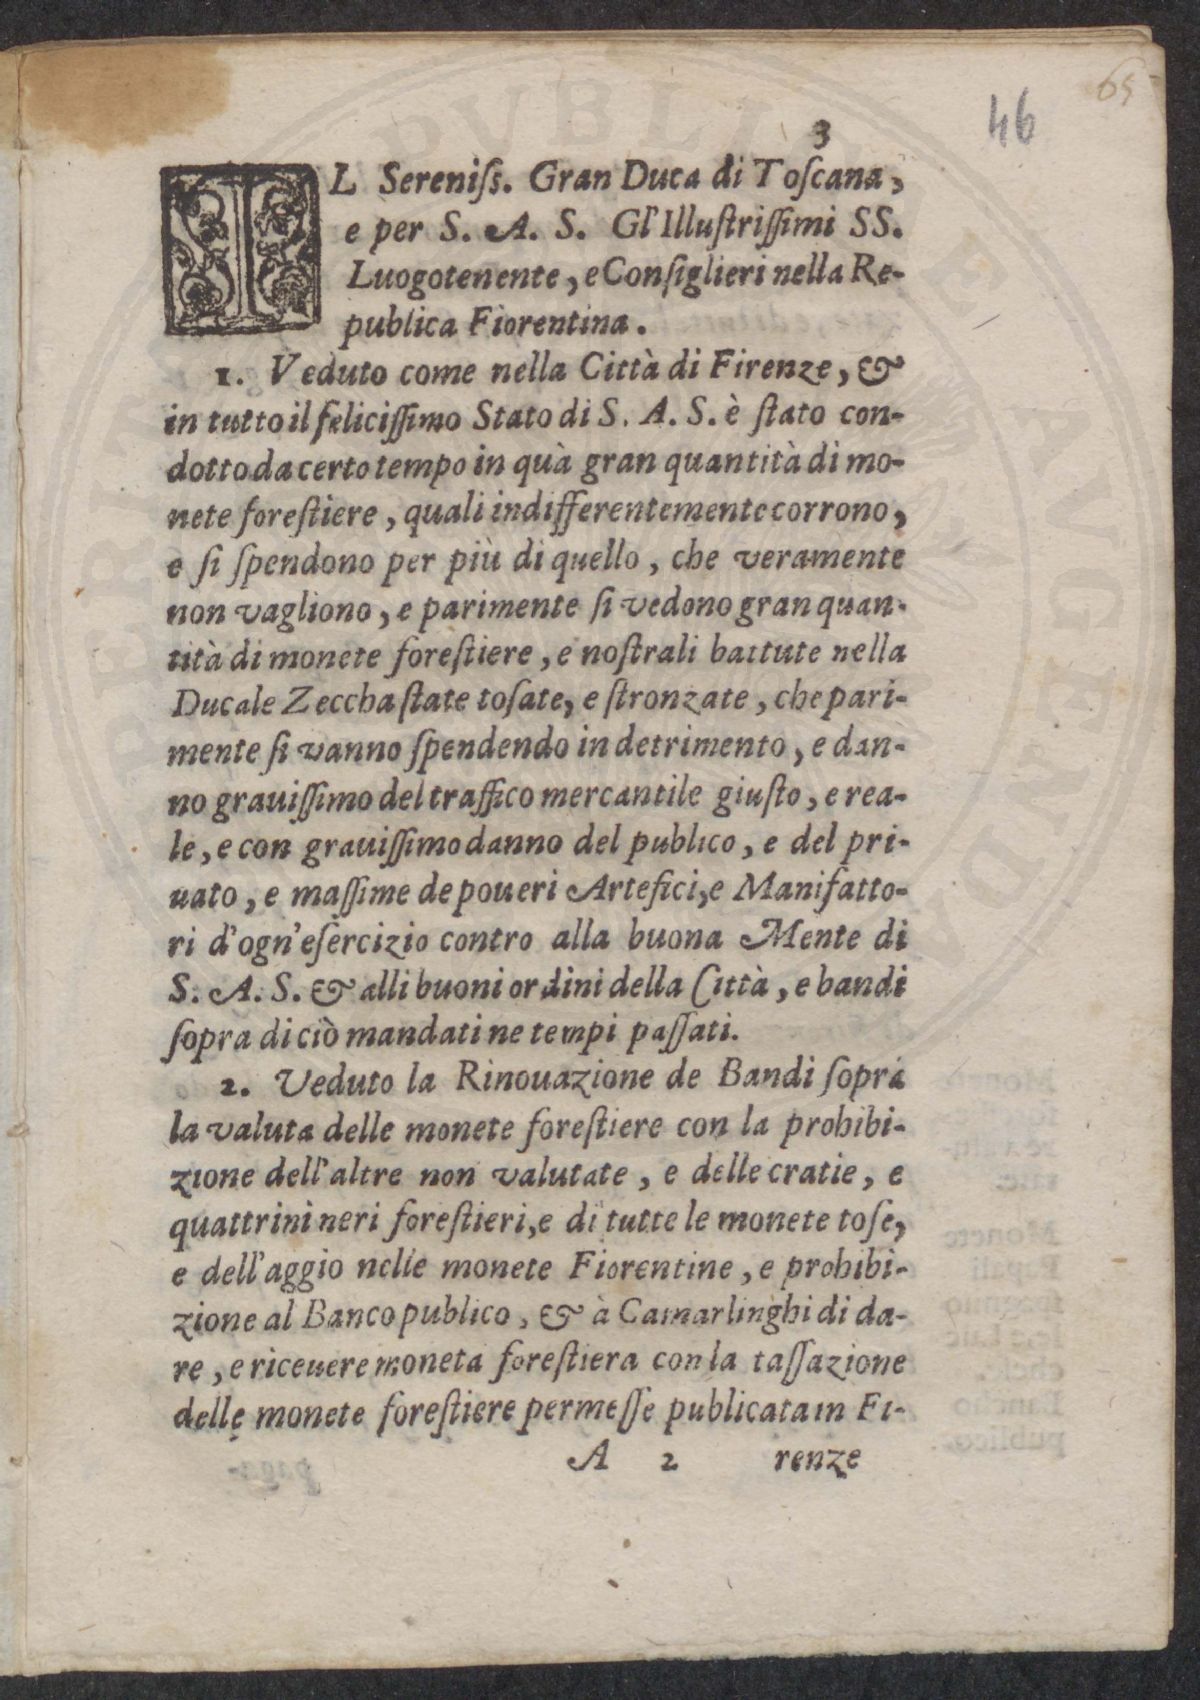 65
46
3
IL Sereniſs. Gran Duca di Toſcana,
e per S. A. S. Gl'Illuſtriſſimi SS.
Luogotenente, e Conſiglieri nella Re-
publica Fiorentina.
1. Veduto come nella Città di Firenze, &
in tutto il feliciſſimo Stato di S. A. S. è ſtato con-
dotto da certo tempo in quà gran quantità di mo-
nete foreſtiere, quali indifferentemente corrono,
e ſi ſpendono per più di quello, che veramente
non vagliono, e parimente ſi vedono gran quan-
tità di monete foreſtiere, e noſtrali battute nella
Ducale Zeccha ſtate toſate, e ſtronzate, che pari-
mente ſi vanno ſpendendo in detrimento, e dan-
no grauiſſimo del traffico mercantile giuſto, e rea-
le, e con grauiſſimo danno del publico, e del pri-
uato, e maſſime de poueri Artefici, e Manifatto-
ri d'ogn'eſercizio contro alla buona Mente di
S. A. S. & alli buoni ordini della Città, e bandi
ſopra di ciò mandati ne tempi paſſati.
2. Veduto la Rinouazione de Bandi ſopra
la valuta delle monete foreſtiere con la prohibi-
zione dell'altre non valutate, e delle cratie, e
quattrini neri foreſtieri, e di tutte le monete toſe,
e dell'aggio nelle monete Fiorentine, e prohibi-
zione al Banco publico, & à Camarlinghi di da-
re, e riceuere moneta foreſtiera con la taſſazione
delle monete foreſtiere permeſſe publicata in Fi-
A 2 renze